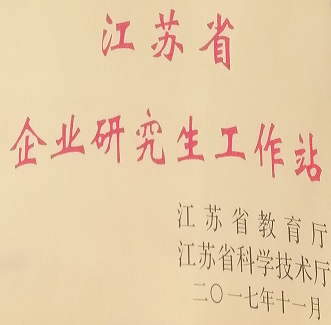 江苏省
企业研究生工作站
江苏省教育厅
江苏省科学技术厅
二〇一七年十一月